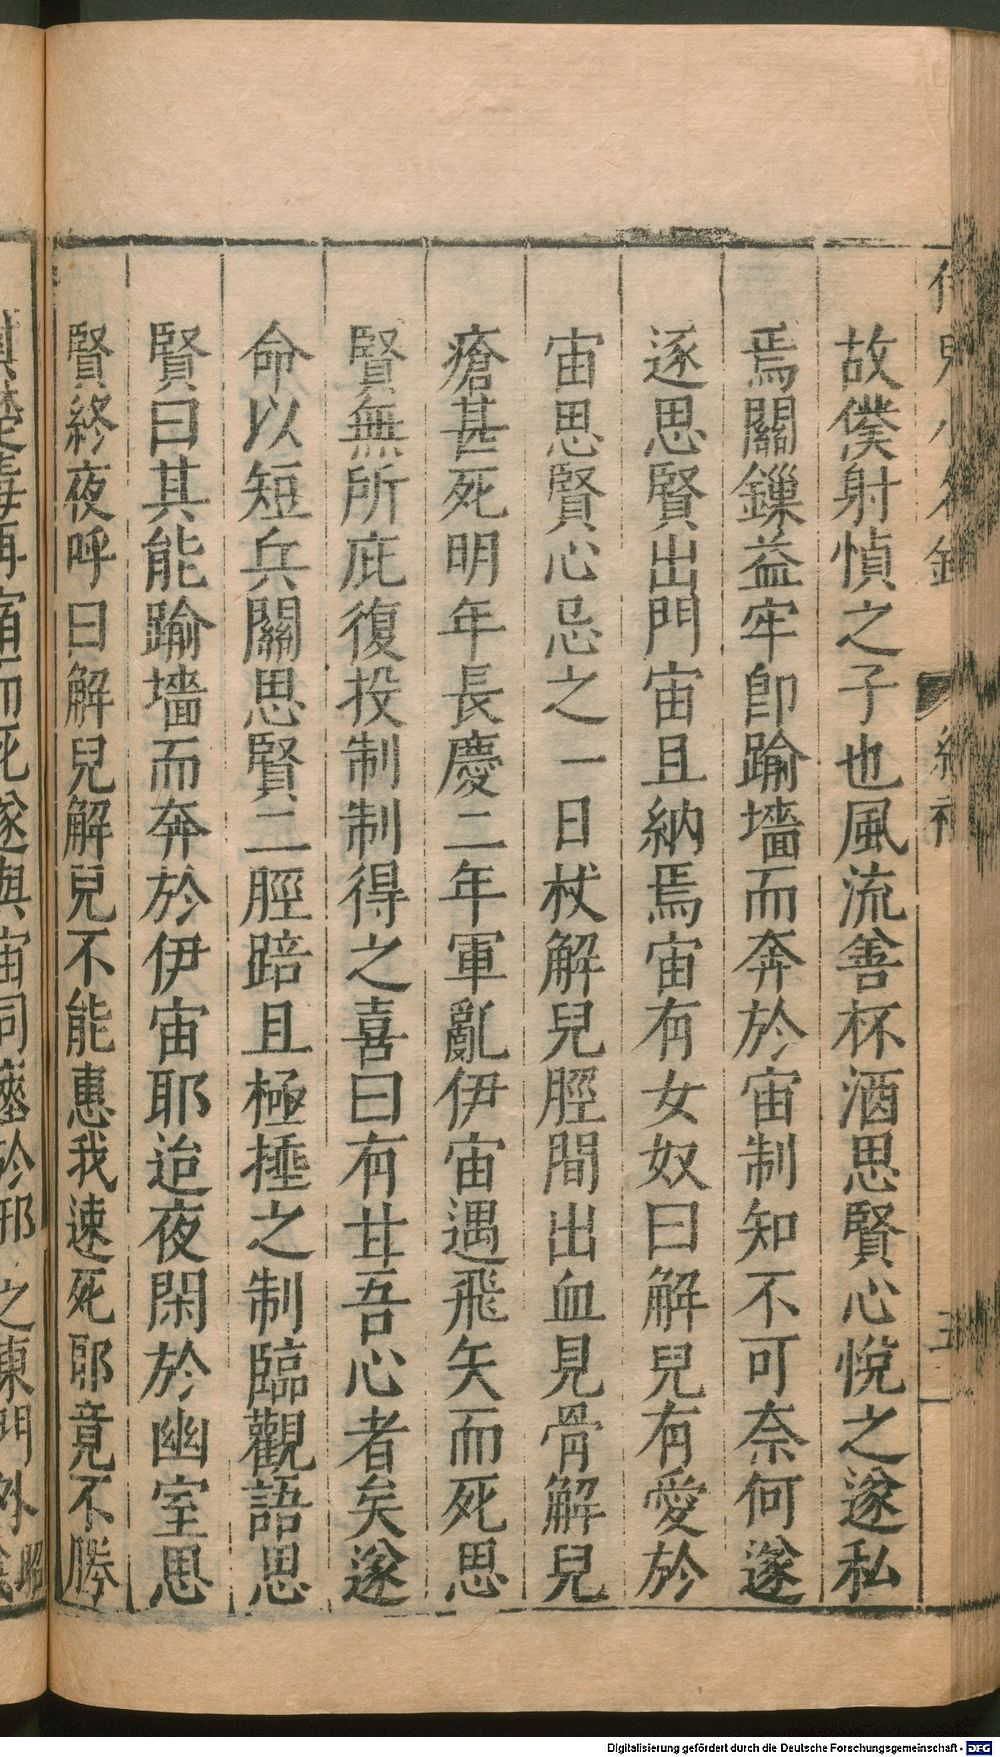 故僕射慎之子也風流善杯酒思賢心悅之遂私
焉關鏁益牢卽踰墻而奔於宙制知不可奈何遂
逐思賢出門宙且納焉宙有女奴曰解兒有愛於
宙思賢心忌之一日杖解兒脛間出血見骨解兒
瘡甚死明年長慶二年軍亂伊宙遇飛矢而死思
賢無所庇復投制制得之喜曰有甘吾心者矣遂
命以短兵關思賢二脛踣且極捶之制臨觀語思
賢曰其能踰墻而奔於伊宙耶迨夜閑於幽室思
賢終夜呼曰解兒解兒不能惠我速死耶竟不勝
再宿而死遂與宙同
之東門外
Digitalisierung gefördert durch die Deutsche Forschungsgemeinschaft - DFG